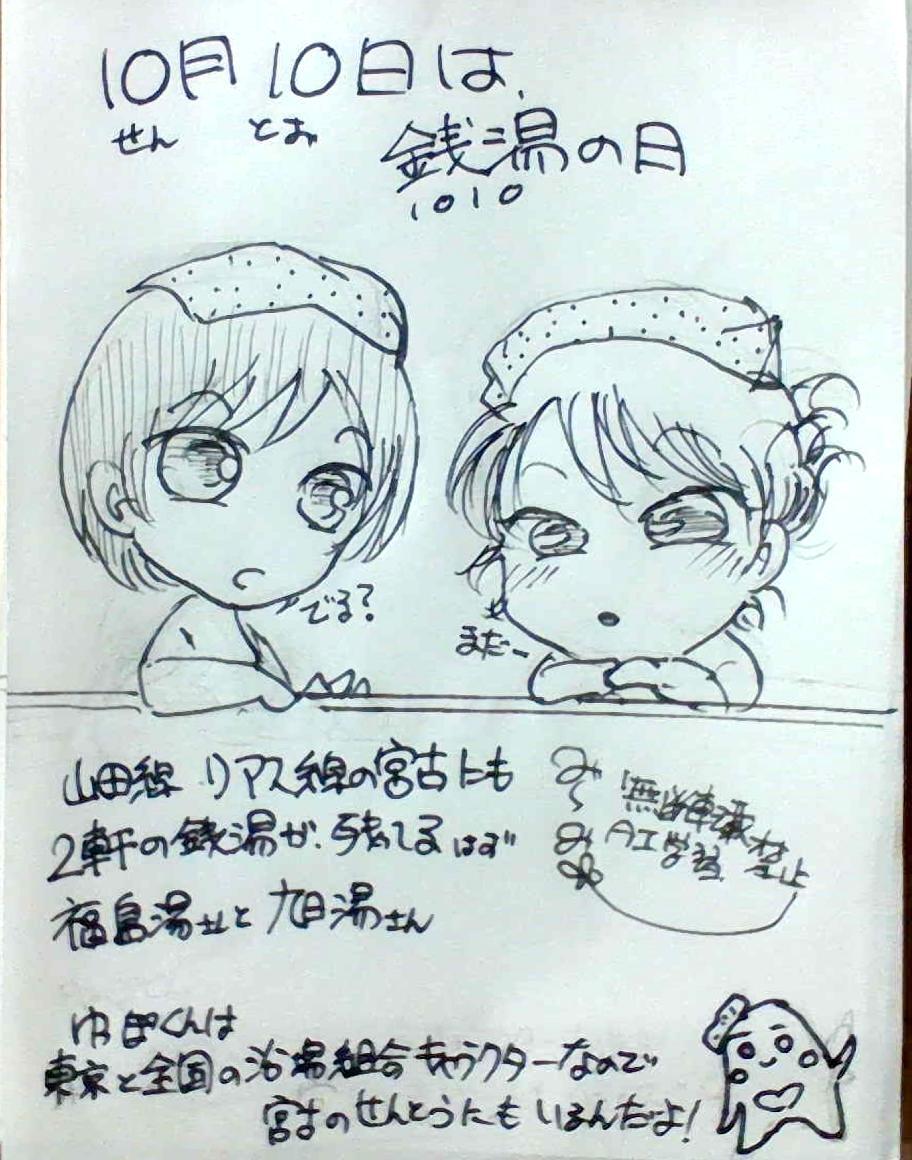 10月10日は、
せん とお
銭湯の日
1010
でる?
まだー
山田線 リアス線の宮古にも
2軒の銭湯が、残ってるはず
福島湯さんと旭湯さん
み~み
無断転載
AI学習 禁止
ゆっぽくんは
東京と全国の浴場組合キャラクターなので
宮古のせんとうにもいるんだよ!